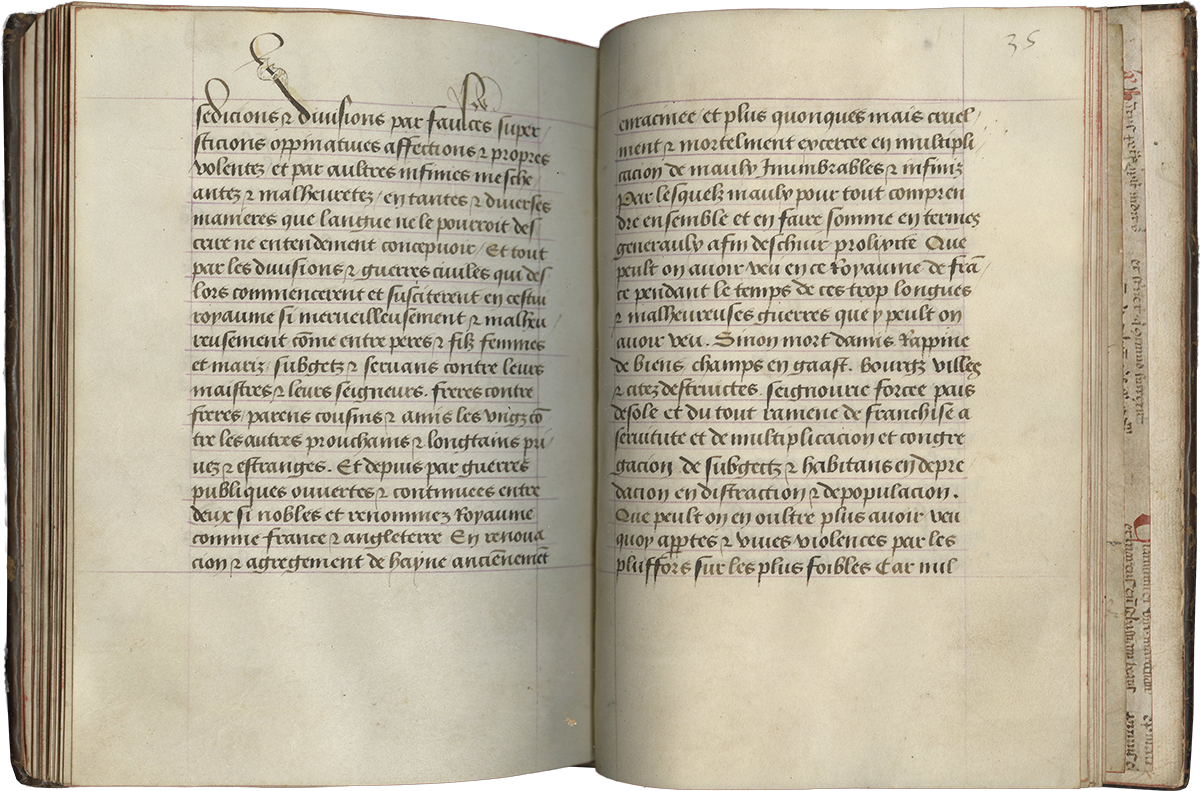 sedicions ⁊ divisions par faulces super-
sticions oppinatives affections ⁊ propres
volentez et par aultres infinies mesche
antez ⁊ malheuretez / en tantes ⁊ diverses
manieres que langue ne le pourroit des
crire ne entendement concepvoir / Et tout
par les divisions ⁊ guerres civiles qui des
lors commencerent et susciterent en cestui
royaume si merveilleusement ⁊ malheu
reusement cōme entre peres ⁊ filz femmes
et mariz / subgetz ⁊ servans contre leurs
maistres ⁊ leurs seigneurs. freres contre
freres / parens cousins ⁊ amis les vngz cō
tre les autres prouchains ⁊ longtains pri/
vez ⁊ estranges. Et depuis par guerres
publiques ouvertes ⁊ continuees entre
deux si nobles et renommez Royaume
comme france ⁊ angleterre En renova
cion ⁊ agregement de hayne anciēnemēt
35
enracinee et plus quonques mais cruel/
ment ⁊ mortelment excercee en multipli
cacion de maulx Inumbrables ⁊ infiniz
Par lesquelz maulx pour tout compren
dre ensemble et en faire somme en termes
generaulx afin deschuir prolixite Que
peult on avoir veu en ce Royaume de frā/
ce pendant le temps de ces trop longues
⁊ malheureuses guerres que y peult on
avoir veu. Sinon mort damis Rappine
de biens champs en gaast. Bourgz villes
⁊ citez destructes. seignourie forcee pais
desole et du tout ramene de franchise a
servitute et de multiplicacion et congre
gacion de subgectz ⁊ habitans en depre
dacion en distraction ⁊ depopulacion.
Que peult on en oultre plus avoir veu
quoy apptes ⁊ vives violences par les
plusfors sur les plus foibles Car nul